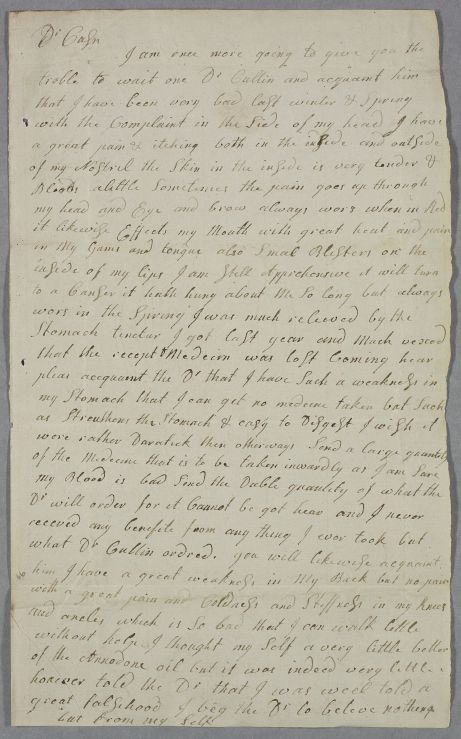 Dr Casn
I am once more going to give you the
troble to wait one Dr Cullin and acquaint him
that I have been very bad last winter & Spring
with the Complaint in the Side of my head I have
a great pain & itching both in the inside and outside
of my Nostrel the Skin in the inside is very tender &
Bloods alittle Sometimes the pain goes up through
my head and Eye and brow always wors when in Bed
it likewise Effects my Mouth with great heat and pain
in My Gams and tongue also Smal Blisters on the
inside of my lips I am Still Apprehensive it will turn
to a Canser it hath hung about Me So long but always
wors in the Spring I was much relieved by the
Stomach tinctur I got last year and Much vexed
that the recept & Medecin was lost Coming hear
pleas acquaent the Dr that I have Such a weakness in
my Stomach that I can get no medcine taken but Such
as Strenthens the Stomach & easy to Disgest I wish it
were rather Duratick then otherways Send a large quantity
of the Medecine that is to be taken inwardly as I am Sure
my Blood is bad Send the Duble quantity of what the
Dr will order for it Cannot be got hear and I never
receved any benefite from any thing I ever took but
what Dr Cullin ordred. you will likewise acquaint
him I have a great weakness in My Back but no pain
with a great pain and Coldness and Stiffness in my knees
and ancles which is So bad that I can walk little
without help I thought my Self a very little better
of the Annodone oil but it was indeed very little
hoaever told the Dr that I was weel told a
great falsehood I beg the Dr to beleve nothing
but from my Self